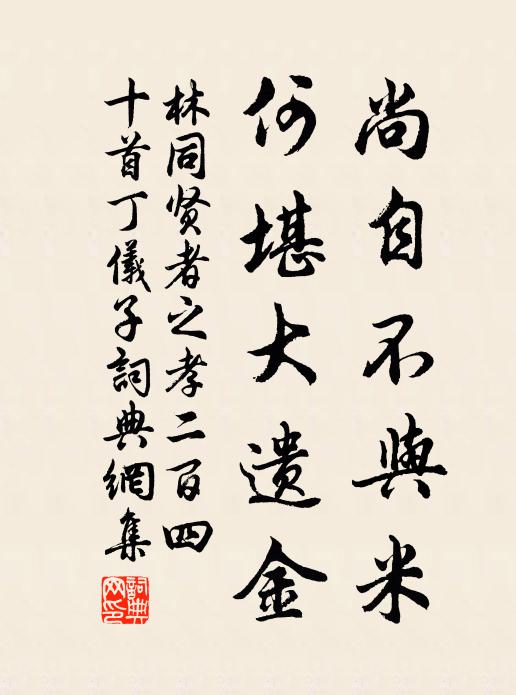 尚自不與米
何堪大遗金
林同贤者之孝二百四
十首丁儀子詞典網集